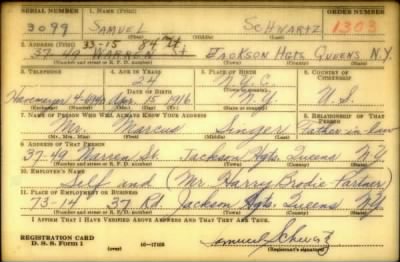 SERIAL NUMBER 1. NAME (Print) ORDER NUMBER
3099 SAMUEL SCHWARTZ 1303
(First) (Middle) (Last)
2. ADDRESS (Print) 33-15 84 St
37-40 WARREN St JACKSON Hgts QUEENS N.Y.
(Number and street or R. F. D. number) (Town) (County) (State)
3. TELEPHONE 4. AGE IN YEARS 5. PLACE OF BIRTH 6. COUNTRY OF CITIZENSHIP
24 N.Y.C.
DATE OF BIRTH
Havemeyer 4- Apr. 15 1916 N.Y. U.S.
(Exchange) (Number) (Mo.) (Day) (Yr.) (State or country)
7. NAME OF PERSON WHO WILL ALWAYS KNOW YOUR ADDRESS 8. RELATIONSHIP OF THAT PERSON
Mr. Marcus Singer Father in law
(Mr., Mrs., Miss) (First) (Middle) (Last)
9. ADDRESS OF THAT PERSON
37-40 Warren St. Jackson Hgts. Queens N.Y.
(Number and street or R. F. D. number) (Town) (County) (State)
10. EMPLOYER'S NAME
Self and (Mr. Harry Brodie Partner)
11. PLACE OF EMPLOYMENT OR BUSINESS
73-14 37 Rd. Jackson Hgts. Queens N.Y.
(Number and street or R. F. D. number) (Town) (County) (State)
I AFFIRM THAT I HAVE VERIFIED ABOVE ANSWERS AND THAT THEY ARE TRUE.
REGISTRATION CARD
D. S. S. Form 1 (over) 16-17105 Samuel Schwartz
(Registrant's signature)